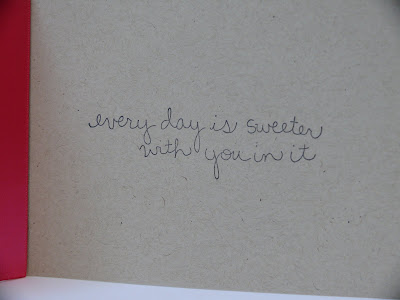 every day is sweeter
with you in it